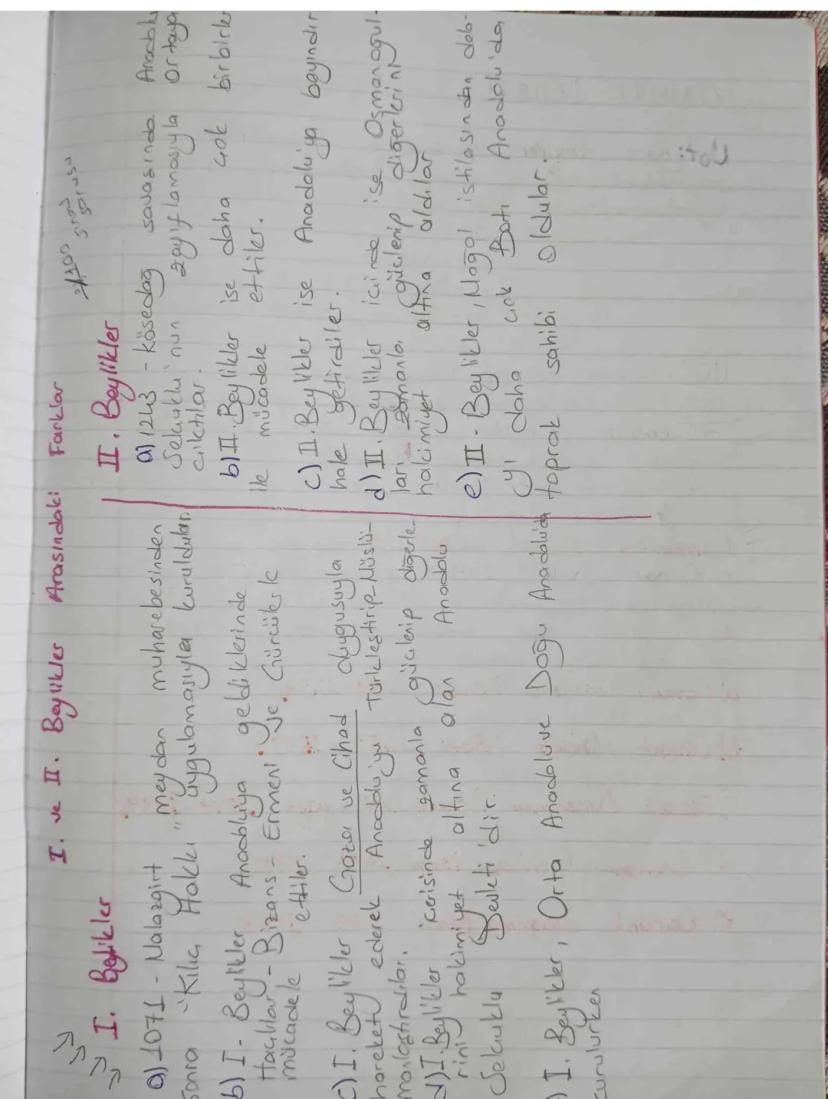 I. ve II. Beylikler Arasındaki Farklar
I. Beylikler
a) 1071 - Malazgirt meydan muharebesinden
sonra "Kılıç Hakkı" uygulamasıyla kuruldular.
b) I - Beylikler Anadoluya geldiklerinde
Haçlılar - Bizans - Ermeni ve Gürcülerle
mücadele ettiler.
c) I. Beylikler Gaza ve Cihad duygusuyla
hareket ederek Anadoluyu Türkleştirip-Müslü-
manlaştırdılar.
d) I. Beylikler içerisinde zamanla güçlenip diğerle-
rini hakimiyet altına alan Anadolu
Selçuklu Devleti'dir.
) I. Beylikler, Orta Anadolu ve Doğu Anadoluda
kurulurken
sınav sorusu
II. Beylikler
a) 1243 - Kösedag savasında Anadolu
Selçuklu'nun zayıflamasıyla Ortaya
çıktılar.
b) II. Beylikler ise daha çok birbirleri
ile mücadele ettiler.
c) II. Beylikler ise Anadolu'ya bayındır
hale getirdiler.
d) II. Beylikler içinde ise Osmanoğul-
ları zamanla güçlenip diğerlerini
hakimiyet altına aldılar
e) II - Beylikler, Moğol istilasından dola-
yı daha çok Batı Anadolu'da
toprak sahibi oldular.
Not: